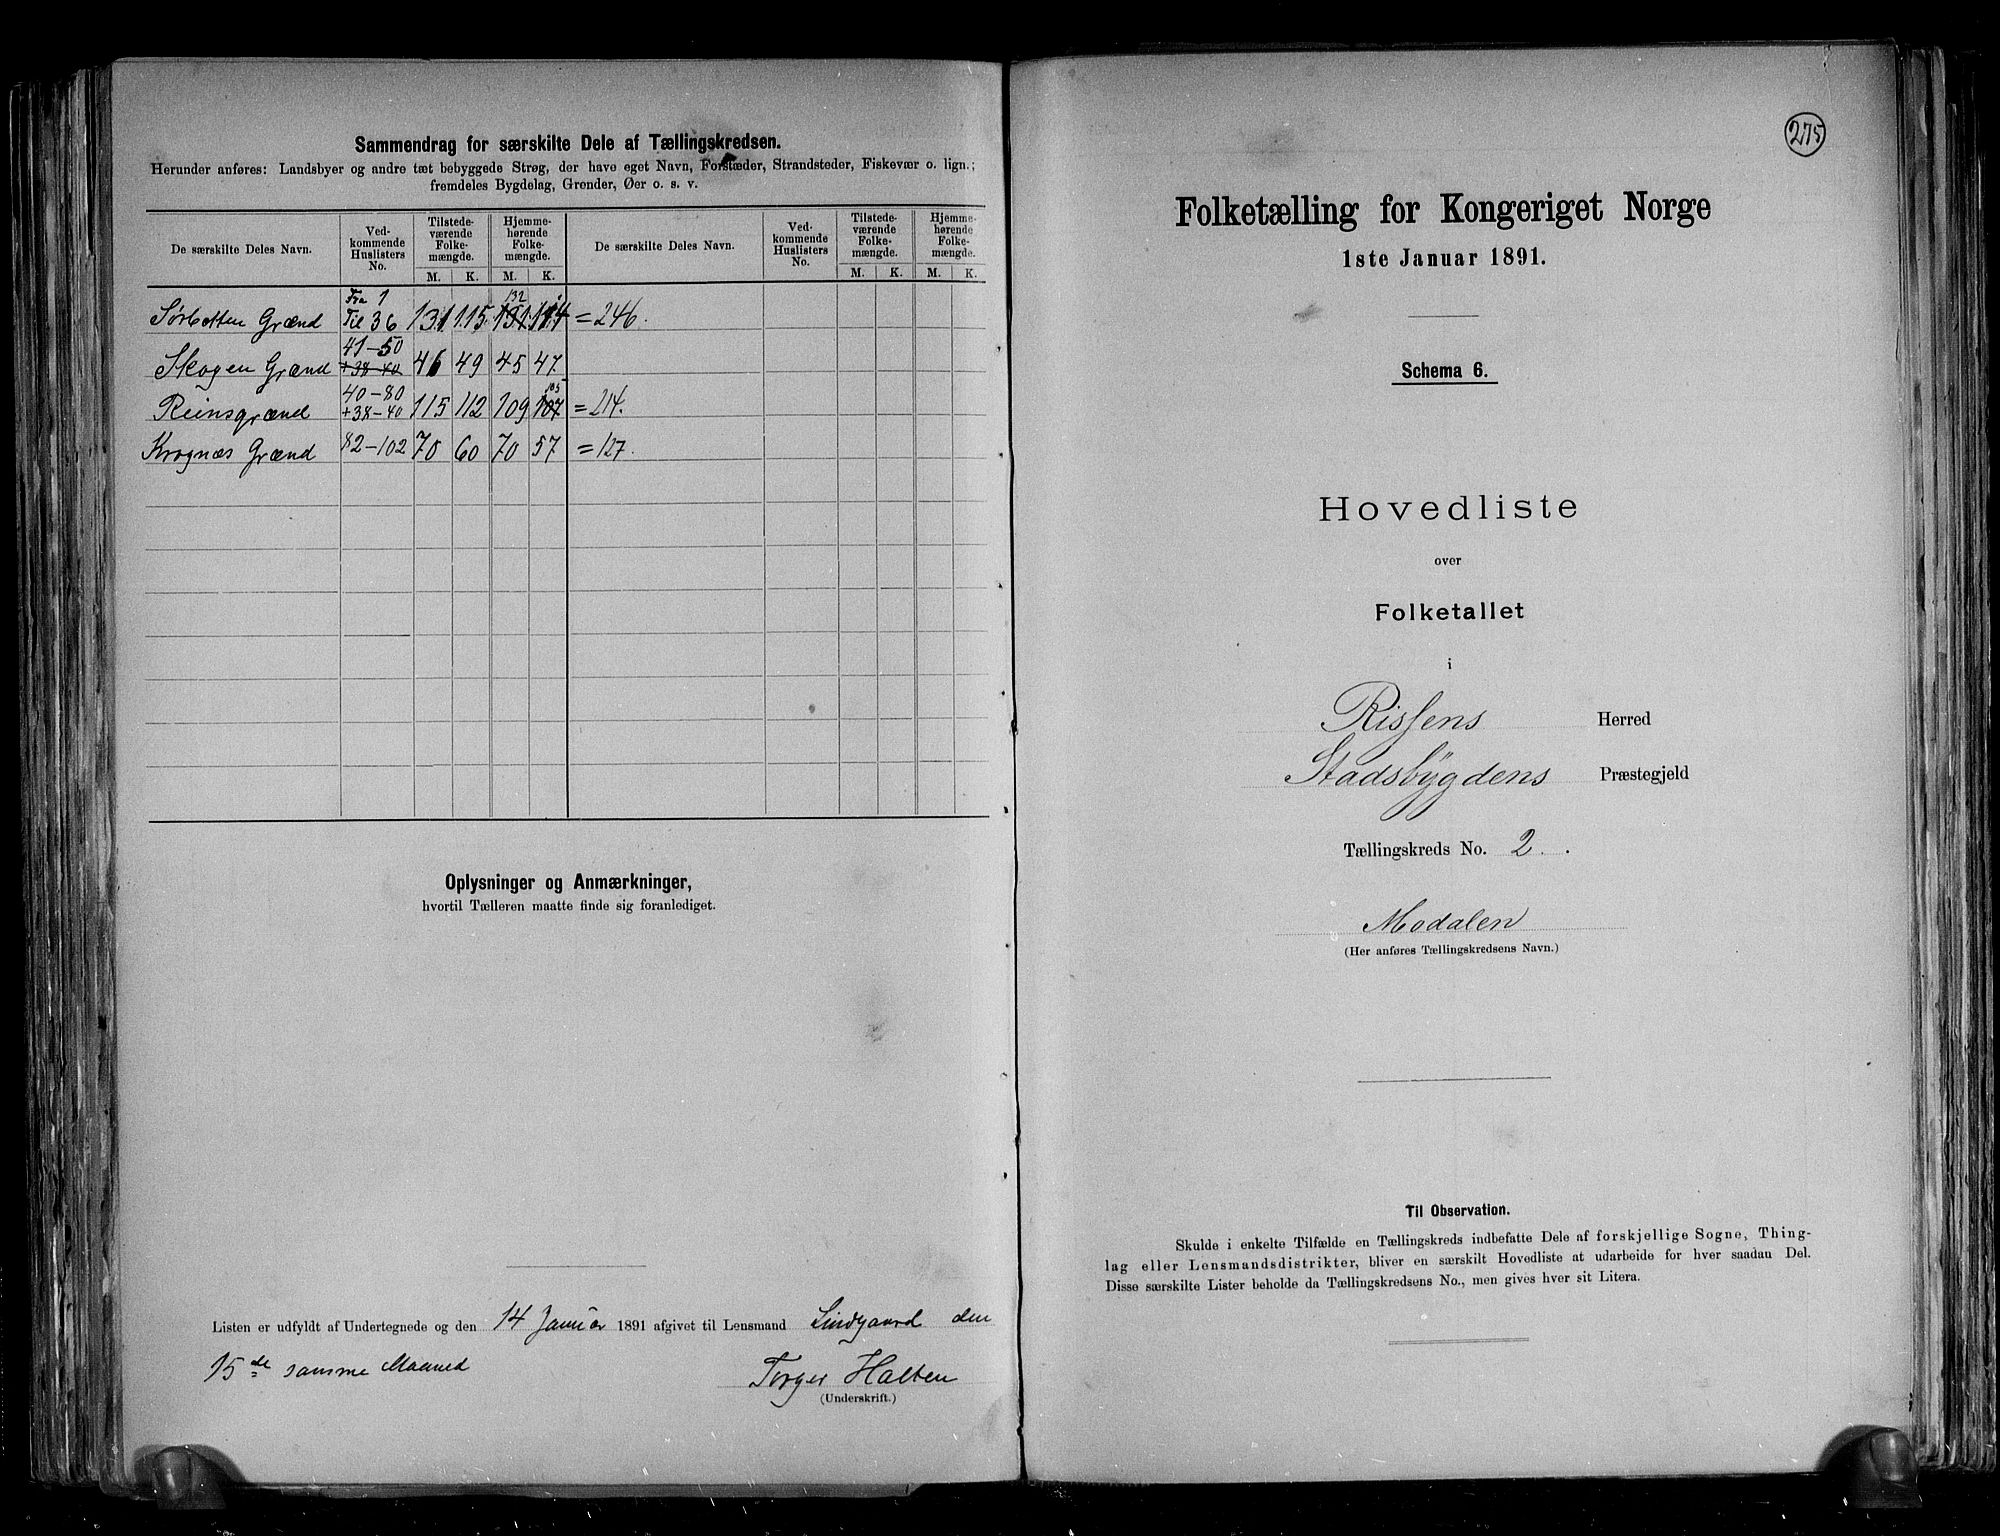 Sammendrag for særskilte Dele af Tællingskredsen.
Herunder anføres: Landsbyer og andre tæt bebyggede Strøg, der have eget Navn, Forstæder, Strandsteder, Fiskevær o. lign.;
fremdeles Bygdelag, Grender, Øer o. s. v.
De særskilte Deles Navn. Ved-kommende Huslisters No. Tilstede-værende Folke-mængde. Hjemme-hørende Folke-mængde. De særskilte Deles Navn. Ved-kommende Huslisters No. Tilstede-værende Folke-mængde. Hjemme-hørende Folke-mængde.
M. K. M. K. M. K. M. K.
Fra 1 132
Sørbotten Grænd Til 36 131 115 131 114 = 246.
41-50
Skogen Grænd +38-40 46 49 45 47
40-80 105
Reinsgrænd +38-40 115 112 109 107 = 214.
Krognæs Grænd 82-102 70 60 70 57 = 127.
Oplysninger og Anmærkninger,
hvortil Tælleren maatte finde sig foranlediget.
Listen er udfyldt af Undertegnede og den 14 Januar 1891 afgivet til Lensmand Lindgaard den
15de samme Maaned Torger Halten
(Underskrift.)
275
Folketælling for Kongeriget Norge
1ste Januar 1891.
Schema 6.
Hovedliste
over
Folketallet
i
Rissens Herred
Stadsbygdens Præstegjeld
Tællingskreds No. 2.
Modalen
(Her anføres Tællingskredsens Navn.)
Til Observation.
Skulde i enkelte Tilfælde en Tællingskreds indbefatte Dele af forskjellige Sogne, Thing-
lag eller Lensmandsdistrikter, bliver en særskilt Hovedliste at udarbeide for hver saadan Del.
Disse særskilte Lister beholde da Tællingskredsens No., men gives hver sit Litera.